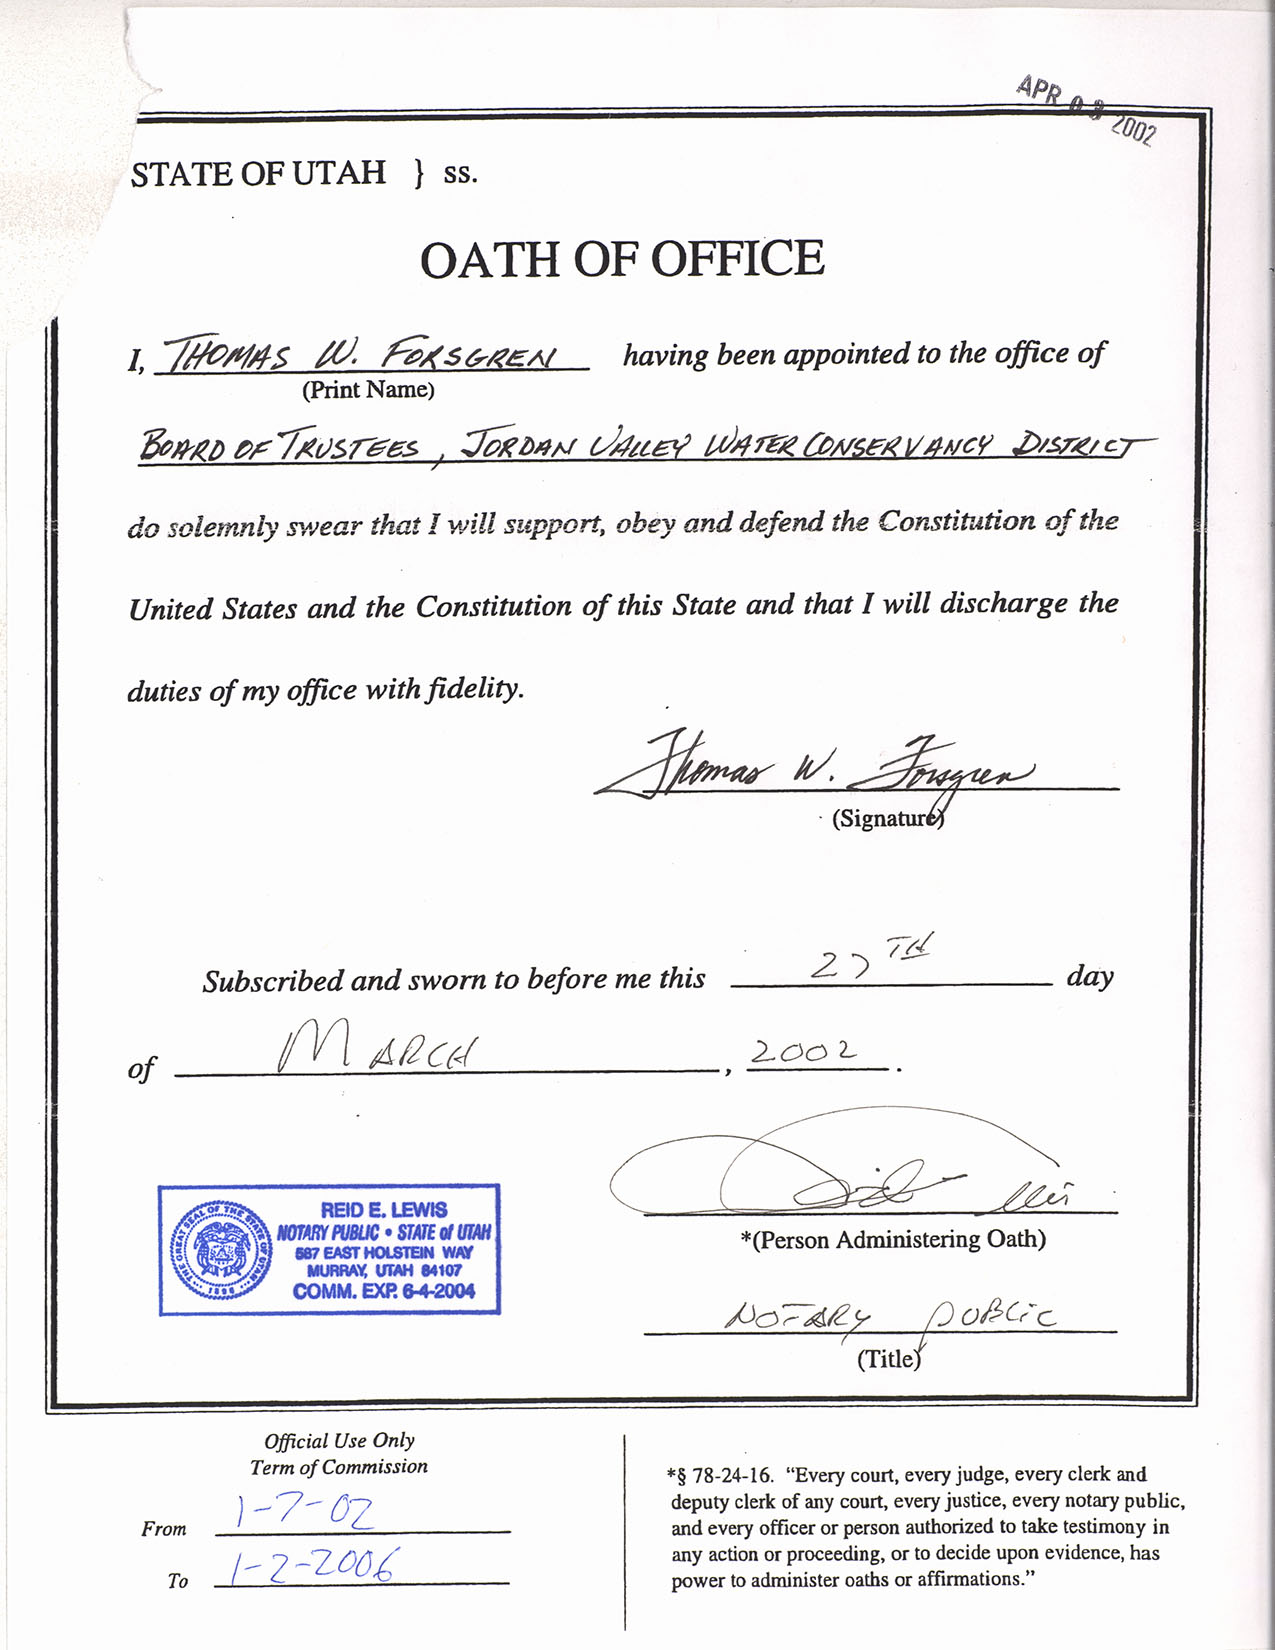 APR 03 2002
STATE OF UTAH } ss.
OATH OF OFFICE
I, THOMAS W. FORSGREN having been appointed to the office of
(Print Name)
BOARD OF TRUSTEES, JORDAN VALLEY WATER CONSERVANCY DISTRICT
do solemnly swear that I will support, obey and defend the Constitution of the
United States and the Constitution of this State and that I will discharge the
duties of my office with fidelity.
Thomas W. Forsgren
(Signature)
Subscribed and sworn to before me this 27TH day
of MARCH, 2002.
*(Person Administering Oath)
THE GREAT SEAL OF THE STATE OF UTAH
1896
REID E. LEWIS
NOTARY PUBLIC • STATE of UTAH
587 EAST HOLSTEIN WAY
MURRAY, UTAH 84107
COMM. EXP. 6-4-2004
NOTARY PUBLIC
(Title)
Official Use Only
Term of Commission
From 1-7-02
To 1-2-2006
*§ 78-24-16. “Every court, every judge, every clerk and
deputy clerk of any court, every justice, every notary public,
and every officer or person authorized to take testimony in
any action or proceeding, or to decide upon evidence, has
power to administer oaths or affirmations.”